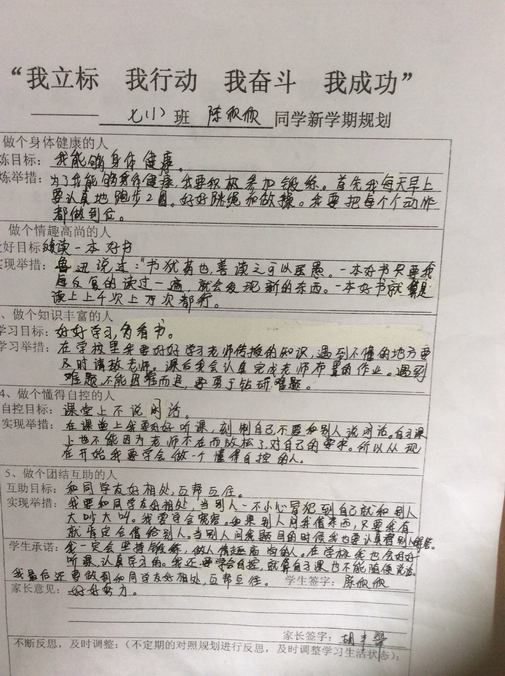 “我立标 我行动 我奋斗 我成功”
七(1) 班 陈欣欣 同学新学期规划
做个身体健康的人
炼目标: 我能够身体健康。
炼举措: 为了我能够身体健康,我要积极参加锻炼。首先我每天早上
要认真地跑步2圈。好好跳绳和做操。我要把每个个动作
都做到位。
做个情趣高尚的人
爱好目标: 阅读一本好书
实现举措: 鲁迅说过:“书犹药也,善读之可以医愚。一本好书只要我
反复的读过一遍,就会发现新的东西。一本好书就算是
读上上千次上万次都行。
、做个知识丰富的人
学习目标: 好好学习,多看书。
学习举措: 在学校里我要好好学习老师传授的知识,遇到不懂的地方要
及时请教老师。课后我会认真完成老师布置的作业。遇到
难题,不能因难而退,要勇于钻研难题。
4、做个懂得自控的人
自控目标: 课堂上不说闲话。
实现举措: 在课堂上我要好好听课,刻制自己不要和别人说闲话。自习课
上也不能因为老师不在而放松了对自己的要求。所以从现
在开始我要学会做一个懂得自控的人。
5、做个团结互助的人
互助目标: 和同学友好相处,互帮互住。
实现举措: 我要和同学友好相处,当别人一不小心冒犯到自己就和别人
大吵大叫。我要学会宽容。如果别人问我借东西,只要我有
就肯定会借给别人。当别人问我题目的时候我也要认真替别人解答。
学生承诺: 我一定会坚持锻炼,做人情趣高尚的人。在学校我也会好好
听课,认真学习的。我还要学会自控,就算自习课也不能随便说话。
我最后还要做到和同学友好相处,互帮互住。 学生签字: 陈欣欣
家长意见: 好好努力。
家长签字: 胡丰翠
不断反思,及时调整:(不定期的对照规划进行反思,及时调整学习生活状态):